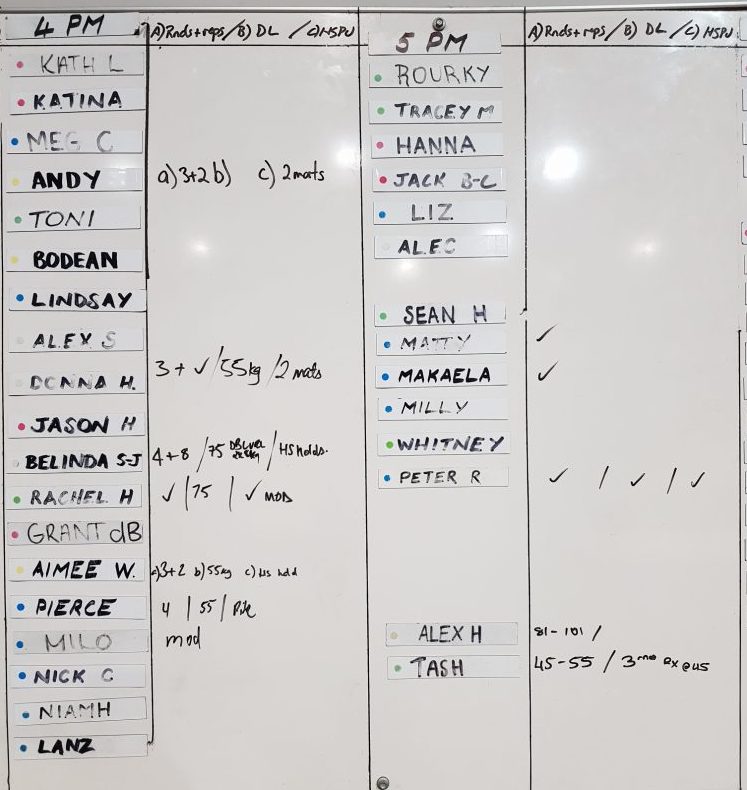 4 PM A) Rnds+reps / B) DL / C) HSPU
KATH L
KATINA
MEG C
ANDY a) 3+2 b) c) 2 mats
TONI
BODEAN
LINDSAY
ALEX S
DONNA H. 3 + ✓ / 55kg / 2 mats
JASON H
BELINDA S-J 4+8 / 75 / HS holds.
RACHEL H ✓ / 75 / ✓ MOD
GRANT dB
AIMEE W. a) 3+2 b) 55kg c) HS hold
PIERCE 4 / 55 / Pike
MILO mod
NICK C
NIAMH
LANZ
5 PM A) Rnds+reps / B) DL / C) HSPU
ROURKY
TRACEY M
HANNA
JACK B-C
LIZ
ALEC
SEAN H
MATTY ✓
MAKAELA ✓
MILLY
WHITNEY
PETER R ✓ / ✓ / ✓
ALEX H 81-101 /
TASH 45-55 / 3